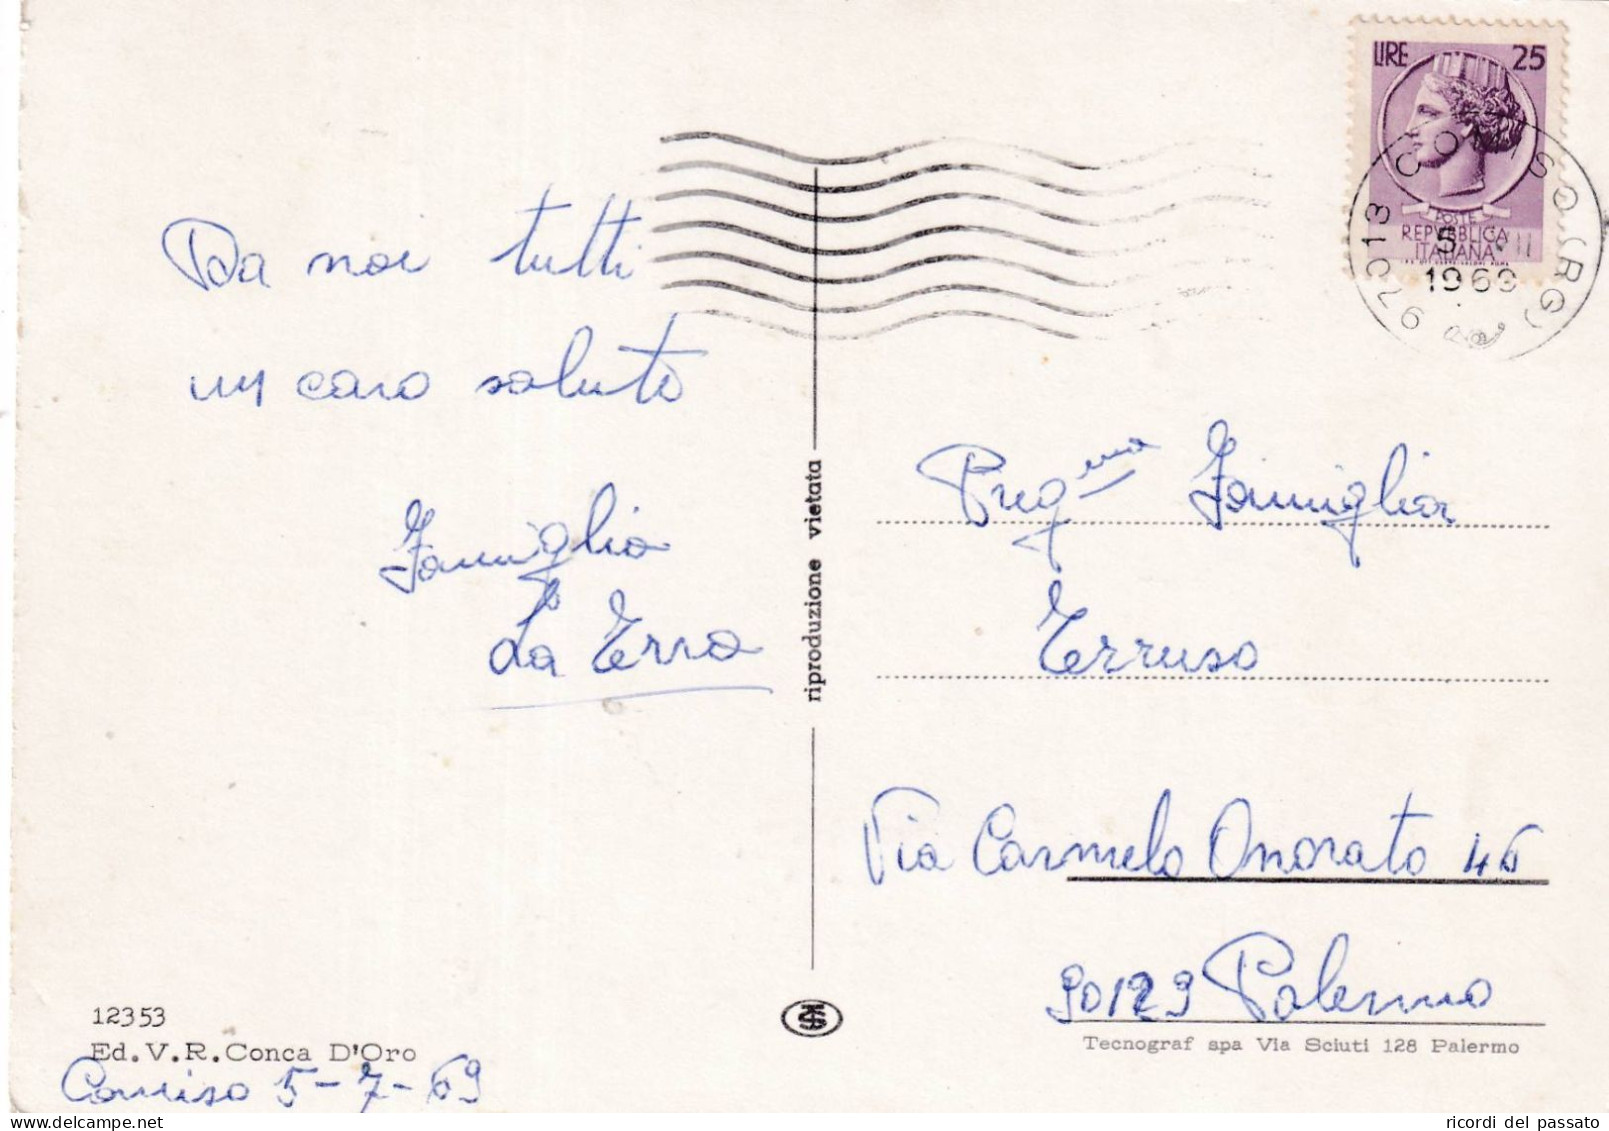 Da noi tutti
un caro saluto
Famiglia
La Terra
12353
Ed. V.R. Conca D'Oro
Comiso 5-7-69
riproduzione vietata
LIRE 25
POSTE
REPVBBLICA
ITALIANA
97013 COMISO (RG)
5 VII
1969
Preg.ma Famiglia
Terruso
Via Carmelo Onorato 46
90129 Palermo
Tecnograf spa Via Sciuti 128 Palermo
ricordi del passato